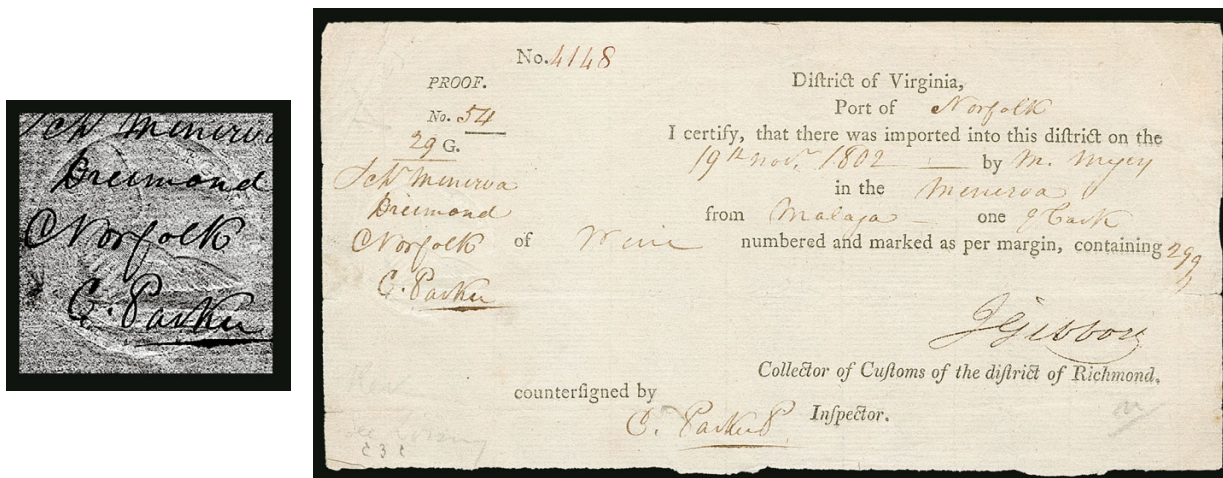 Sch Minerva
Dreimond
Norfolk
C. Parker
No. 4148
PROOF.
No. 54
29 G.
Sch Minerva
Dreimond
Norfolk
C. Parker
Diſtrict of Virginia,
Port of Norfolk
I certify, that there was imported into this diſtrict on the
19th Novr. 1802 — by M. Myer
in the Minerva
from Malaga — one Cask
of Wine numbered and marked as per margin, containing 29 g
JGibbon
Collector of Cuſtoms of the diſtrict of Richmond.
counterſigned by
C. Parker Inſpector.